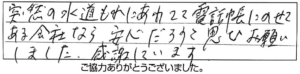 突然の水道もれにあわてて電話帳にのせて
ある会社なら安心だろうと思いお願い
しました。感謝しています
ご協力ありがとうございました。